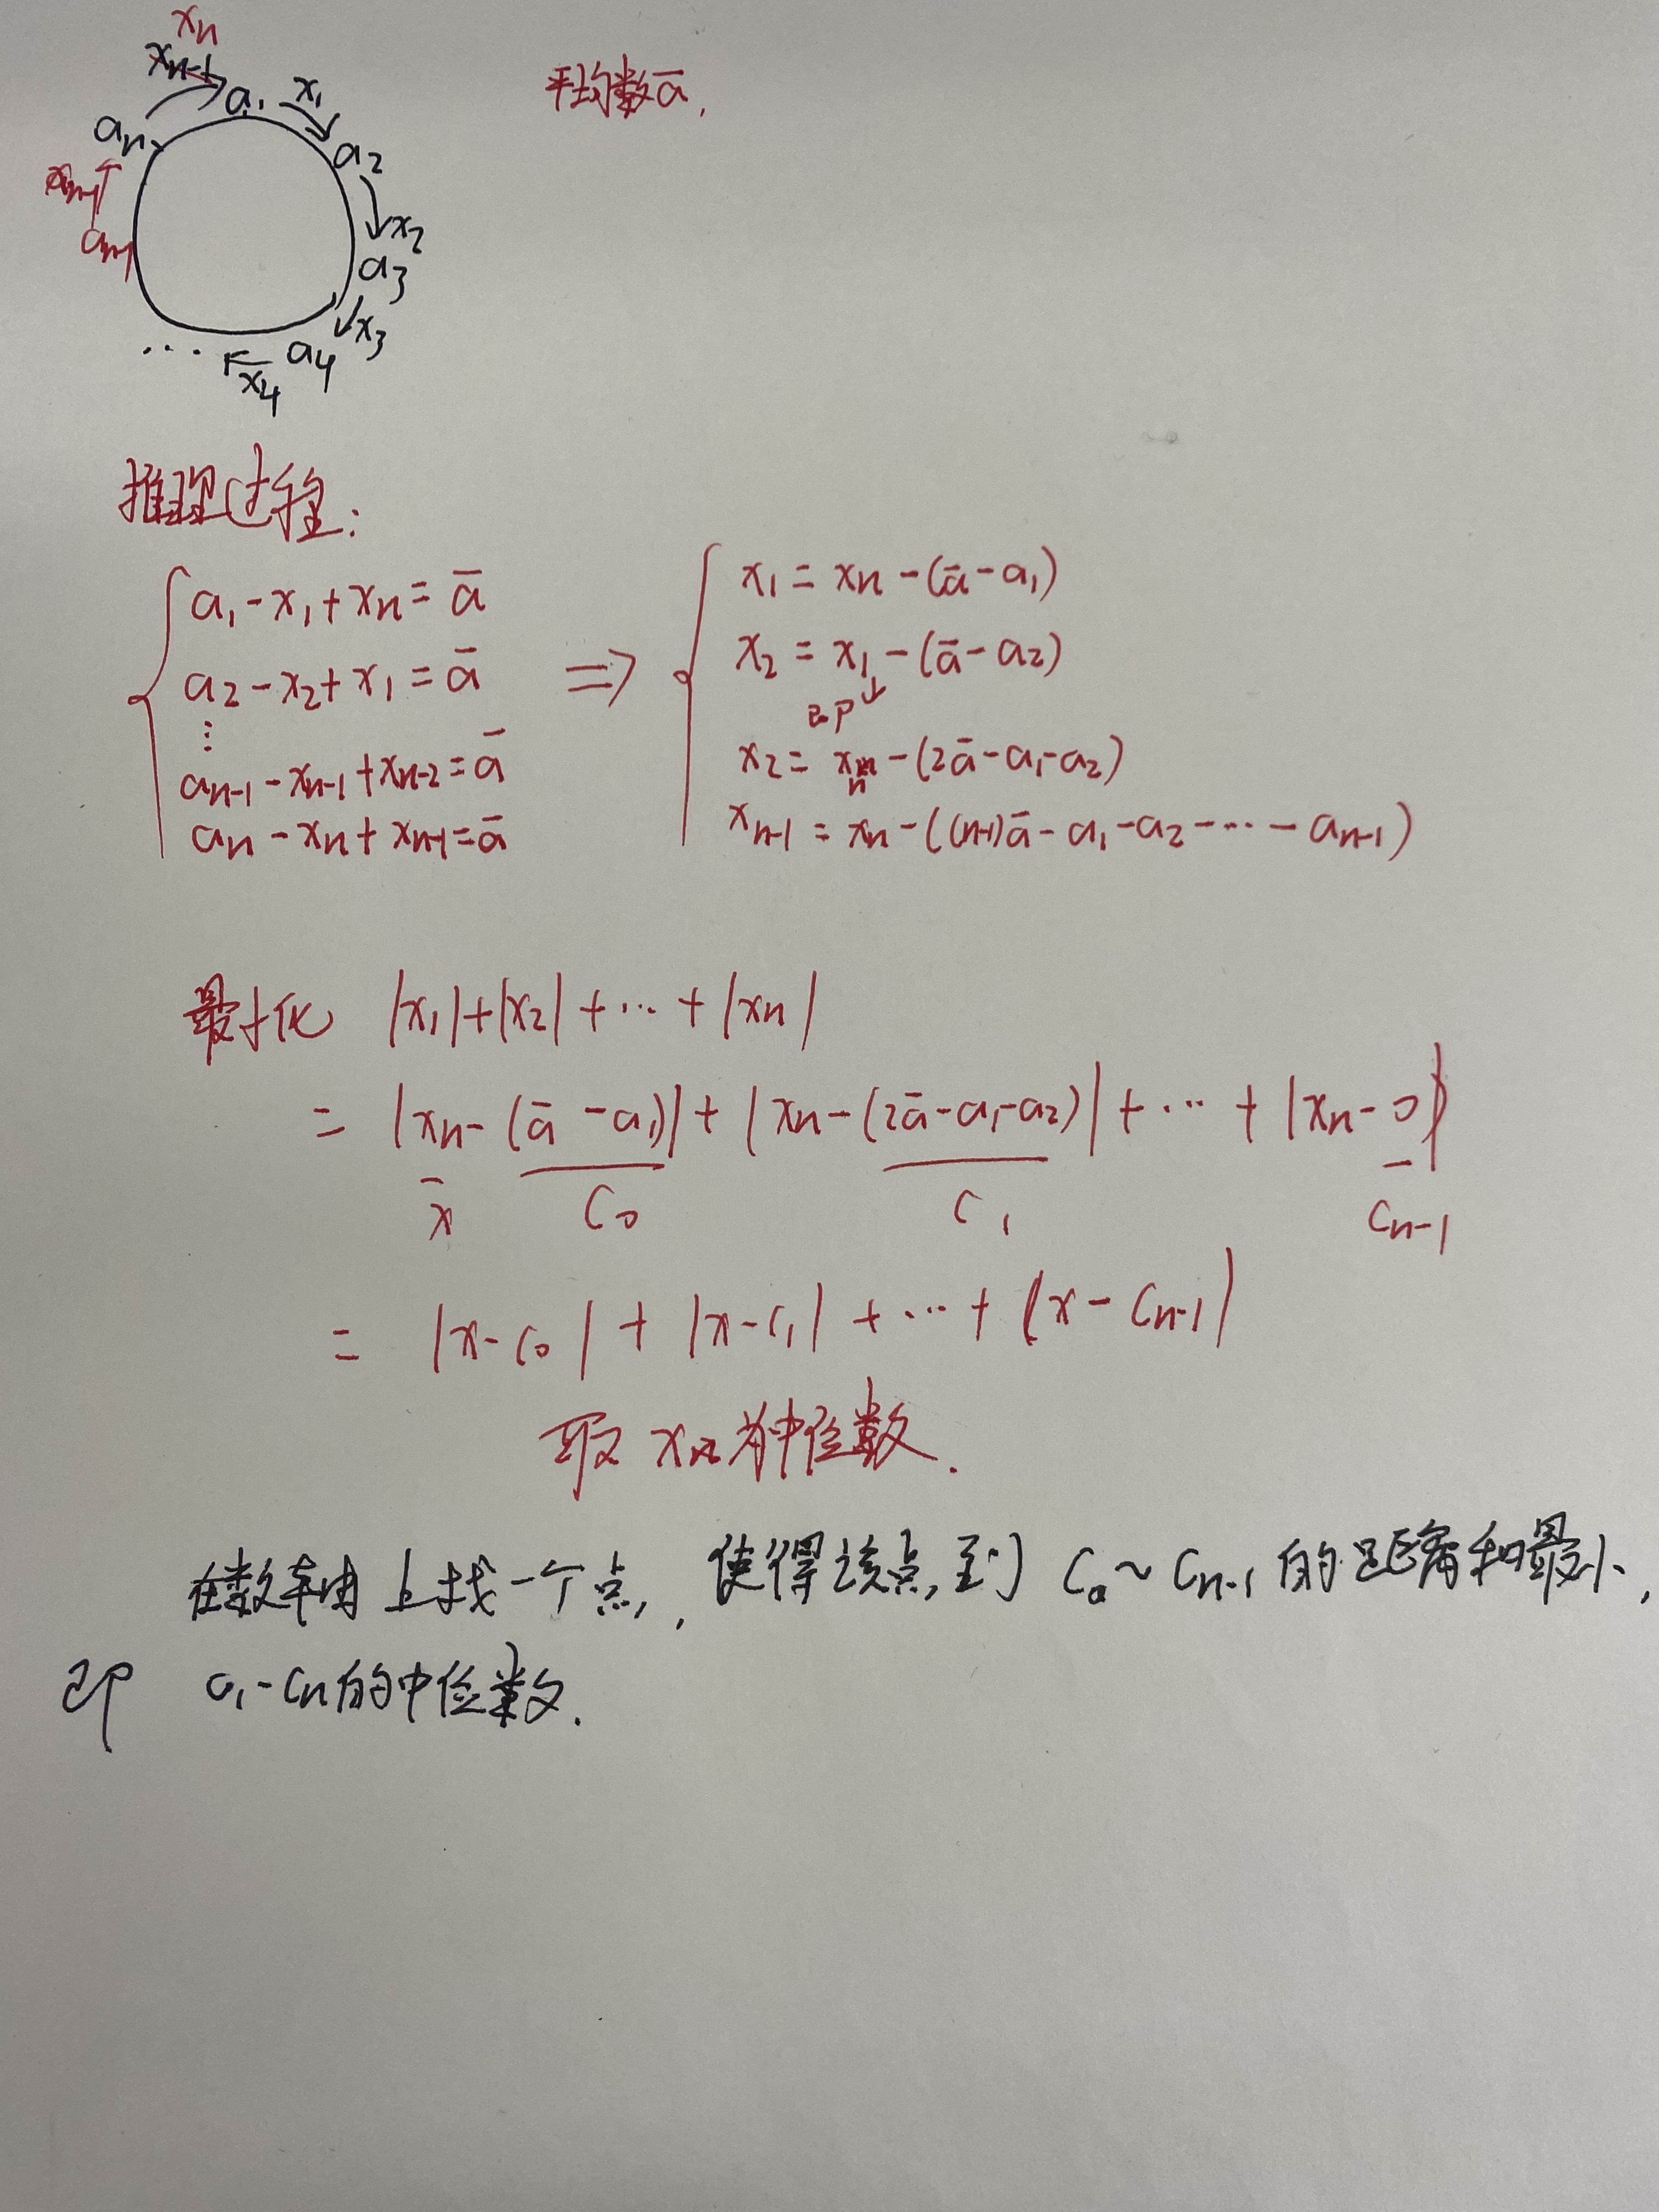 xn
xn-1
a1 x1
an
a2
xn-1
x2
an-1
a3
x3
a4
x4
...
平均数ā.
推理过程:
a1-x1+xn=ā
a2-x2+x1=ā
⋮
an-1-xn-1+xn-2=ā
an-xn+xn-1=ā
⇒
x1=xn-(ā-a1)
x2=x1-(ā-a2)
即↓
x2=xn-(2ā-a1-a2)
xn-1=xn-((n-1)ā-a1-a2-...-an-1)
最小化 |x1|+|x2|+...+|xn|
=|xn-(ā-a1)|+|xn-(2ā-a1-a2)|+...+|xn-0|
x C0 C1 Cn-1
=|x-C0|+|x-C1|+...+|x-Cn-1|
取xn为中位数.
在数轴上找一个点,使得该点到C0~Cn-1的距离和最小,
即 C1-Cn的中位数.